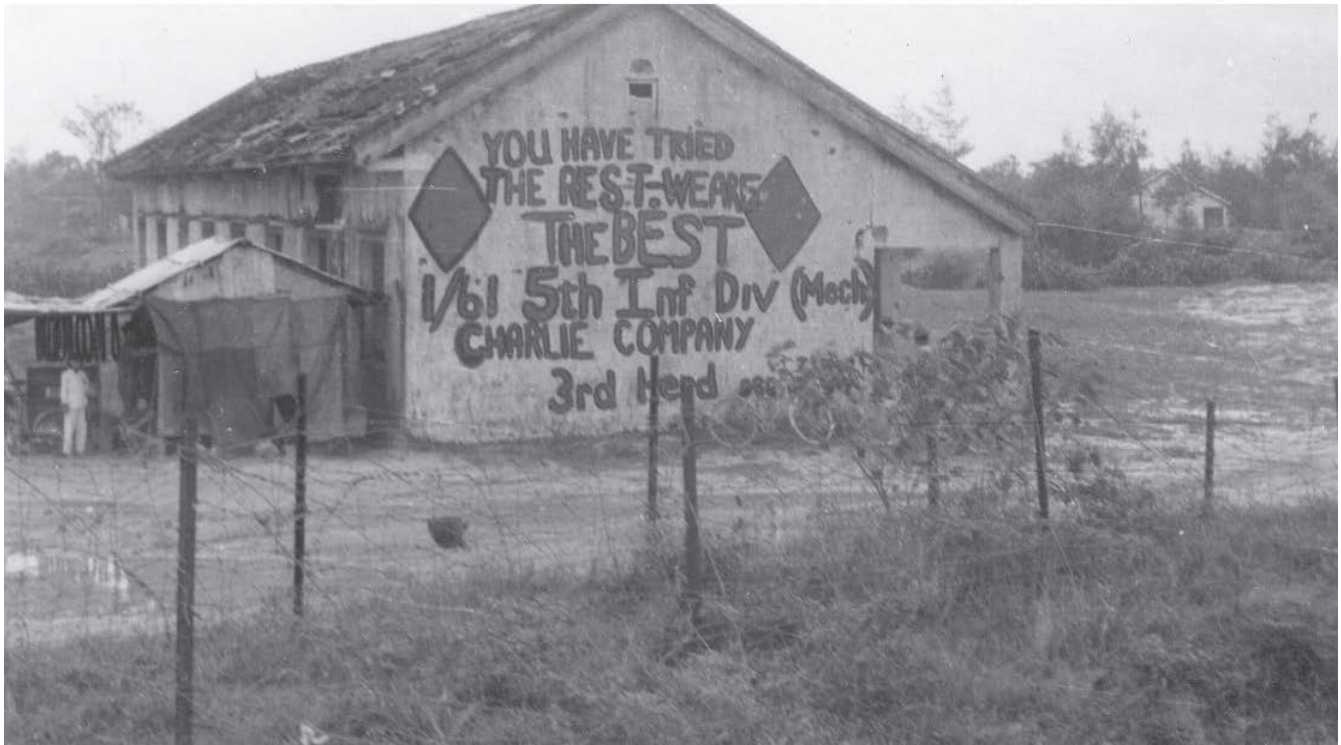 YOU HAVE TRIED
THE REST-WE ARE
THE BEST
1/61 5th Inf Div (Mech)
CHARLIE COMPANY
3rd Herd